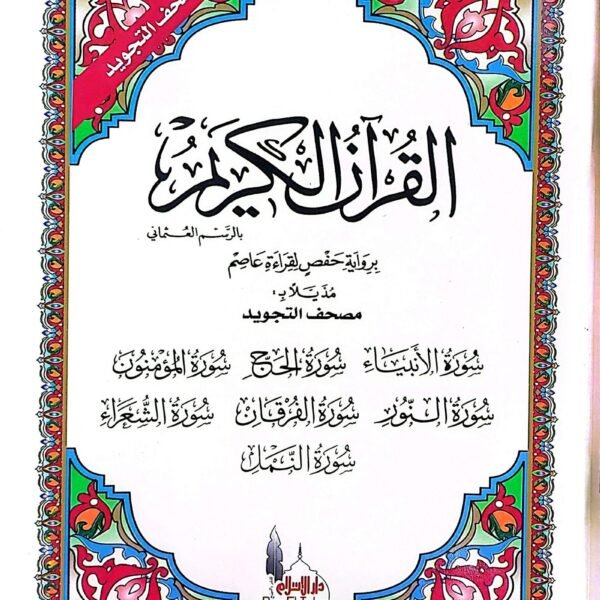 مصحف التجويد
القرآن الكريم
بالرسم العثماني
برواية حفص لقراءة عاصم
مذيلا بـ:
مصحف التجويد
سورة الأنبياء سورة الحج سورة المؤمنون
سورة النور سورة الفرقان سورة الشعراء
سورة النمل
دار الإسلام